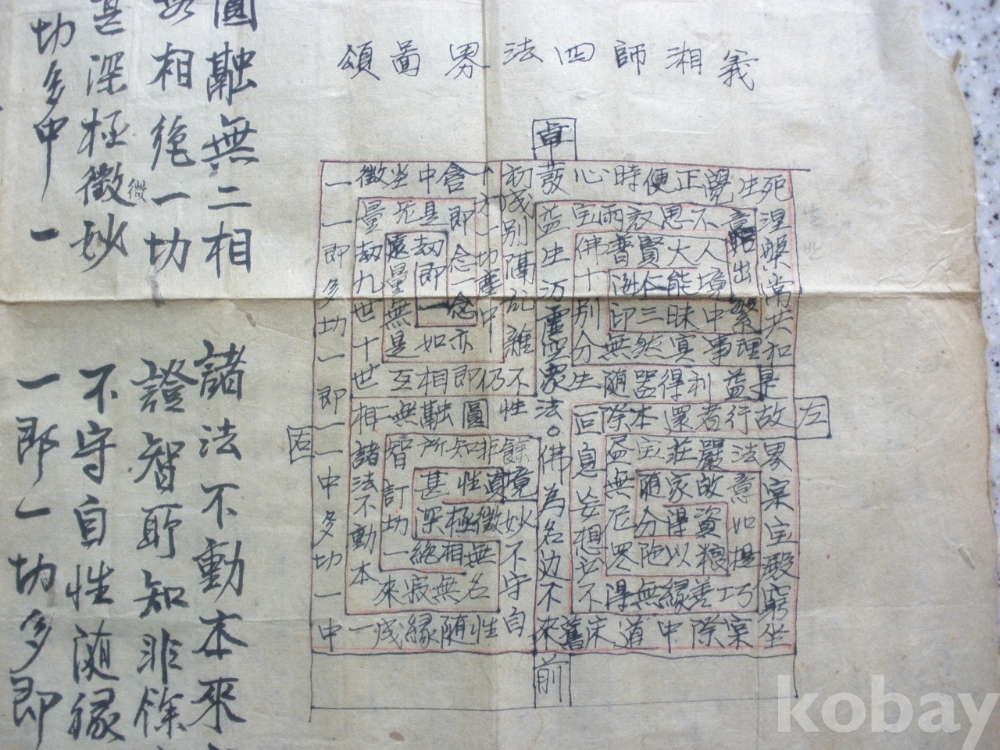 義湘師四法界圖頌
圓融無二相 諸法不動本來
相絶一切 證智所知非餘
甚深極微妙 不守自性随緣
微
切多中一 一即一切多即
卓
一微尘中含十初發心時便正覺生死
一量无是即方成益宝雨衆思不意涅
即劫遠劫念一别生佛普賢大人槃
多九量即一切隔万十海仁能境出常
切世無一念塵乱别印三昧中繁共
一十是如亦中雜分無然冥事理和
即世互相即仍不衆生随器得利益是
一相二無融圓性法。叵除本還者行故
一諸智所知非餘佛息盡宝莊嚴法界
中法訂甚性真境為妄無随家故意宲
多不切深極微妙名想尼分得資如宝
切動一絶相無不边必界陀以粮捉殿
一本來寂無名守不不得無緣善巧窮
中一成緣随性自來舊床道中際宲坐
右
左
前
kobay